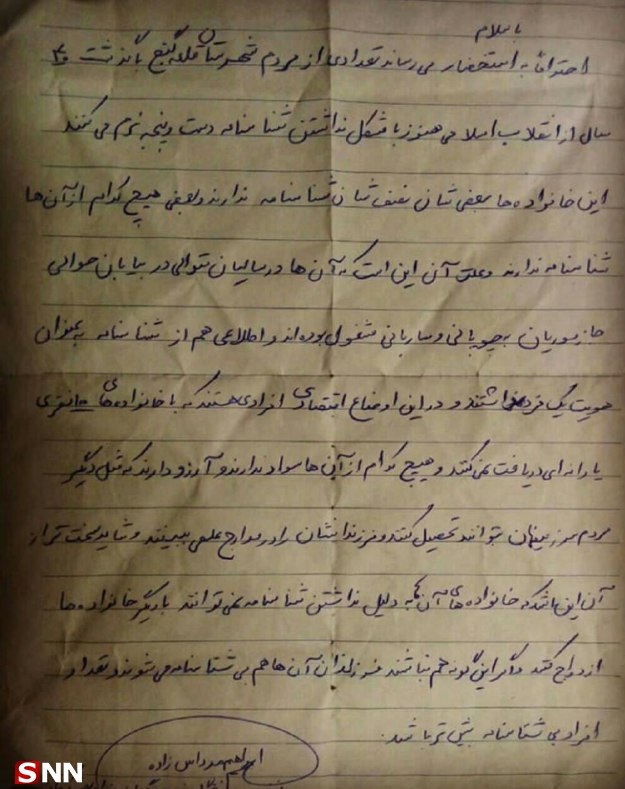 با سلام
احتراماً به استحضار می رساند تعدادی از مردم شهرستان قلعه گنج با گذشت ۴۰
سال از انقلاب اسلامی هنوز با مشکل نداشتن شناسنامه دست و پنجه نرم می کنند
این خانواده ها بعضی شان نصف شان شناسنامه ندارند و بعضی هیچ کدام از آن ها
شناسنامه ندارند و علت آن این است که آن ها در سالیان متوالی در بیابان حوالی
جازموریان به چوپانی و ساربانی مشغول بوده اند و اطلاعی هم از شناسنامه به عنوان
هویت یک فرد نداشتند و در این اوضاع اقتصادی افرادی هستند که با خانواده های ۱۰ نفری
یارانه ای دریافت نمی کنند و هیچ کدام از آن ها سواد ندارند و آرزو دارند که مثل دیگر
مردم سرزمینمان بتوانند تحصیل کنند و فرزندانشان را در مدارج علمی ببینند و شاید سخت تر از
آن این باشد که خانواده های آن ها به دلیل نداشتن شناسنامه نمی توانند با دیگر خانواده ها
ازدواج کنند و اگر این گونه هم باشند فرزندان آن ها هم بی شناسنامه می شوند و تعداد
افراد بی شناسنامه بیش تر باشد.
SNN